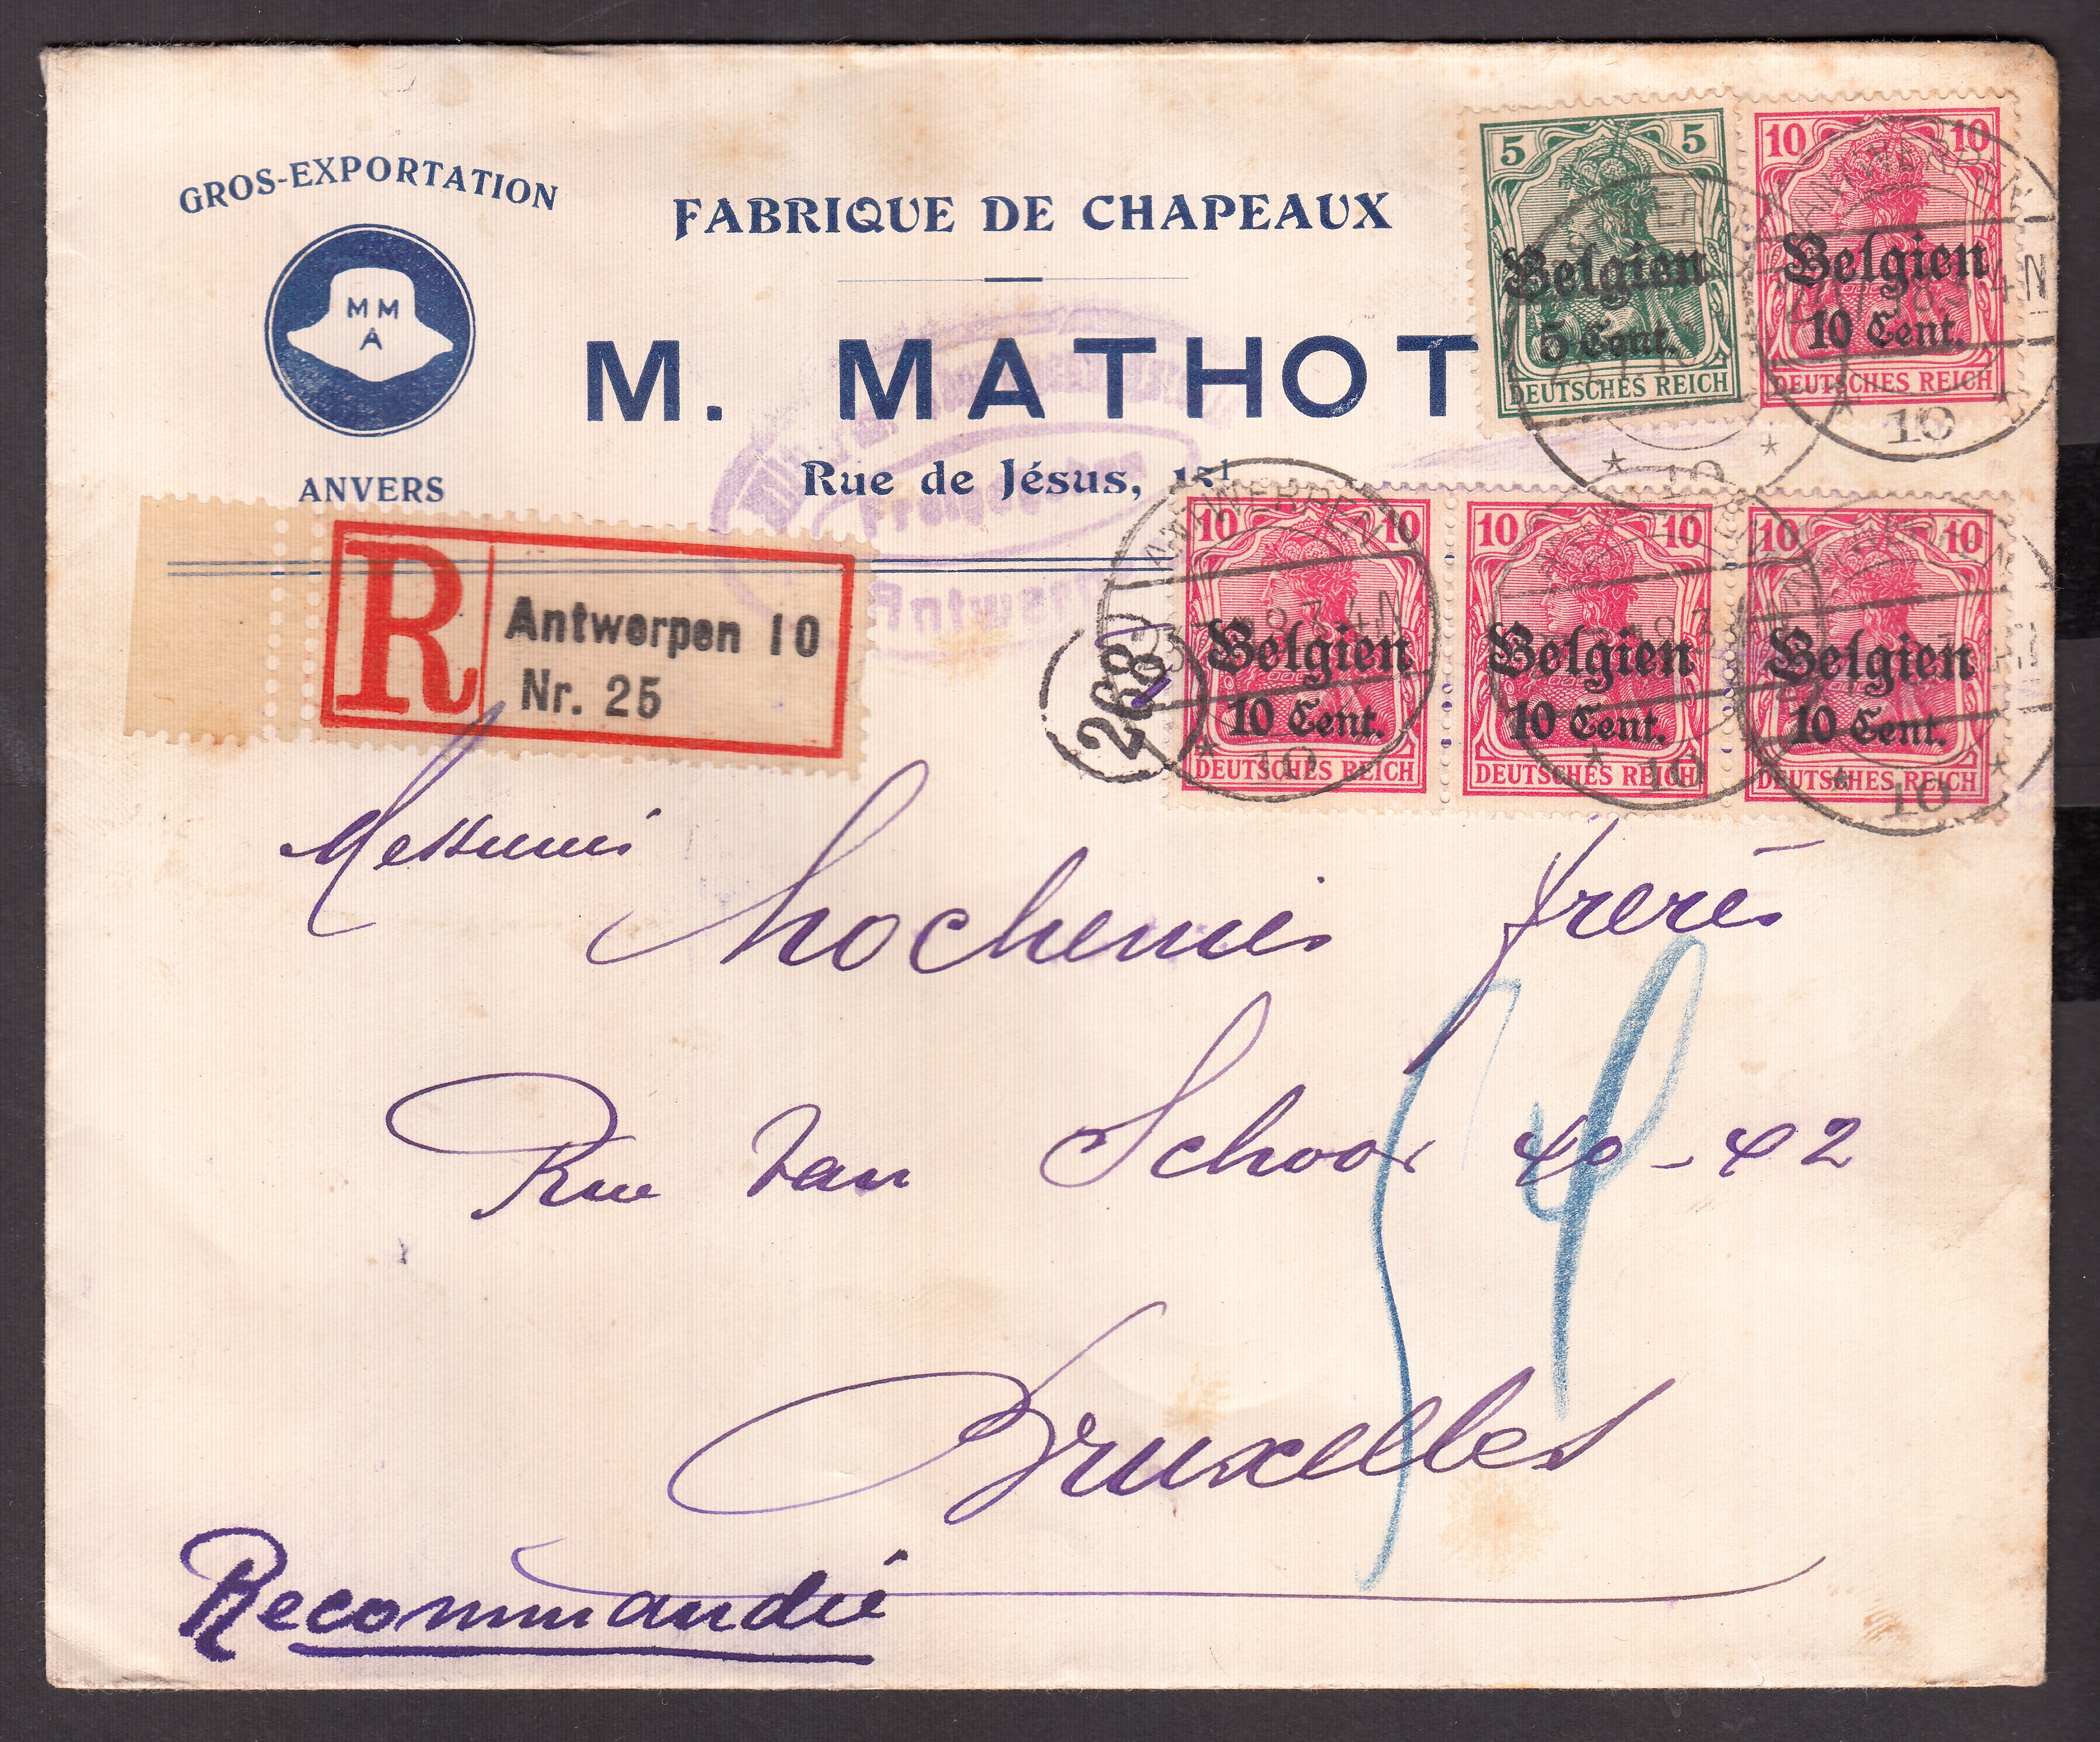 GROS-EXPORTATION
MM
A
ANVERS
FABRIQUE DE CHAPEAUX
M. MATHOT
Rue de Jésus,
5 5
Belgien
5 Cent.
DEUTSCHES REICH
10 10
Belgien
10 Cent.
DEUTSCHES REICH
10 10
Belgien
10 Cent.
DEUTSCHES REICH
10 10
Belgien
10 Cent.
DEUTSCHES REICH
10 10
Belgien
10 Cent.
DEUTSCHES REICH
ANTWERPEN
10
ANTWERPEN
10
10
10
10
R
Antwerpen 10
Nr. 25
268
Messieurs
frères
Rue Van Schoor 40-42
Bruxelles
Recommandée